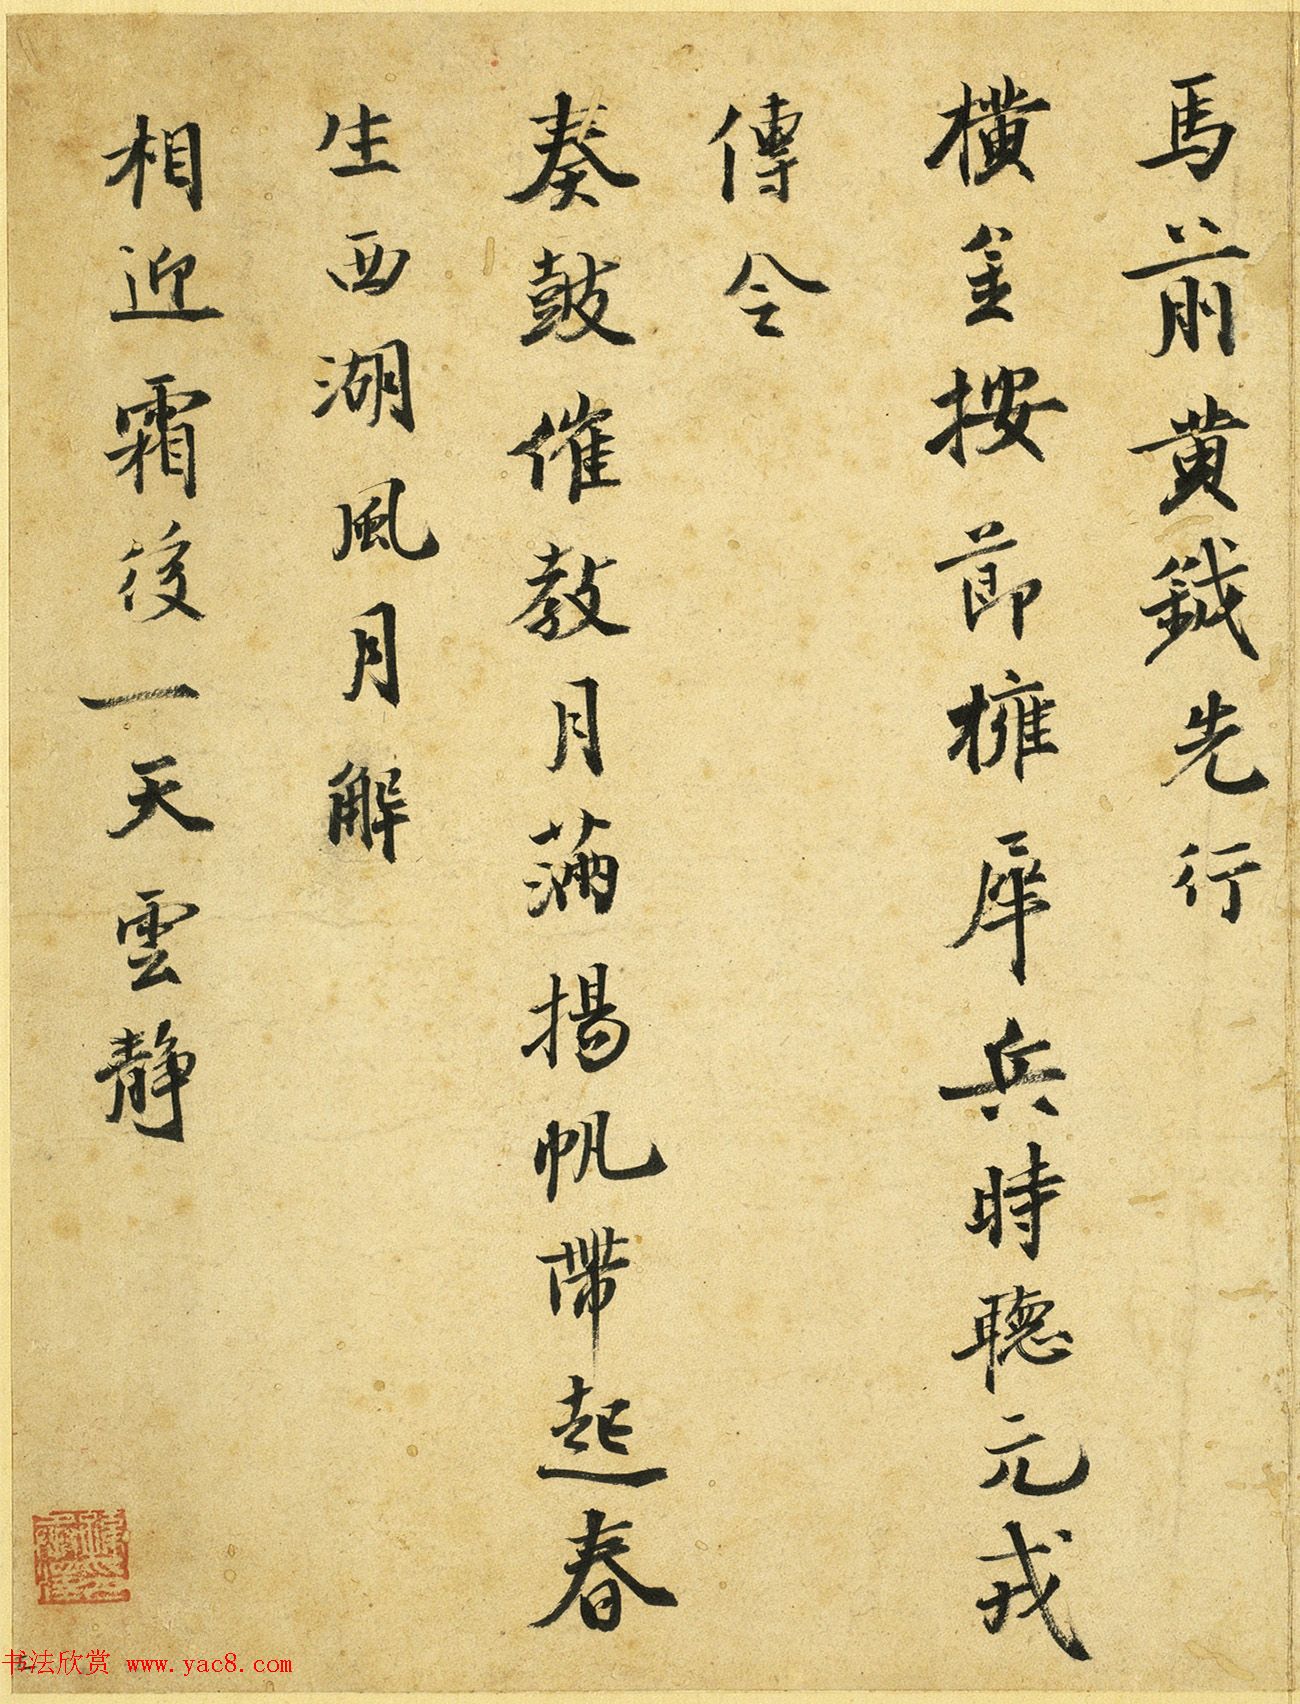 馬前黃鉞先行
橫金按節擁犀兵時聽元戎
傳令
奏鼓催教月滿揚帆帶起春
生西湖風月解
相迎霜後一天雲靜
书法欣赏 www.yac8.com